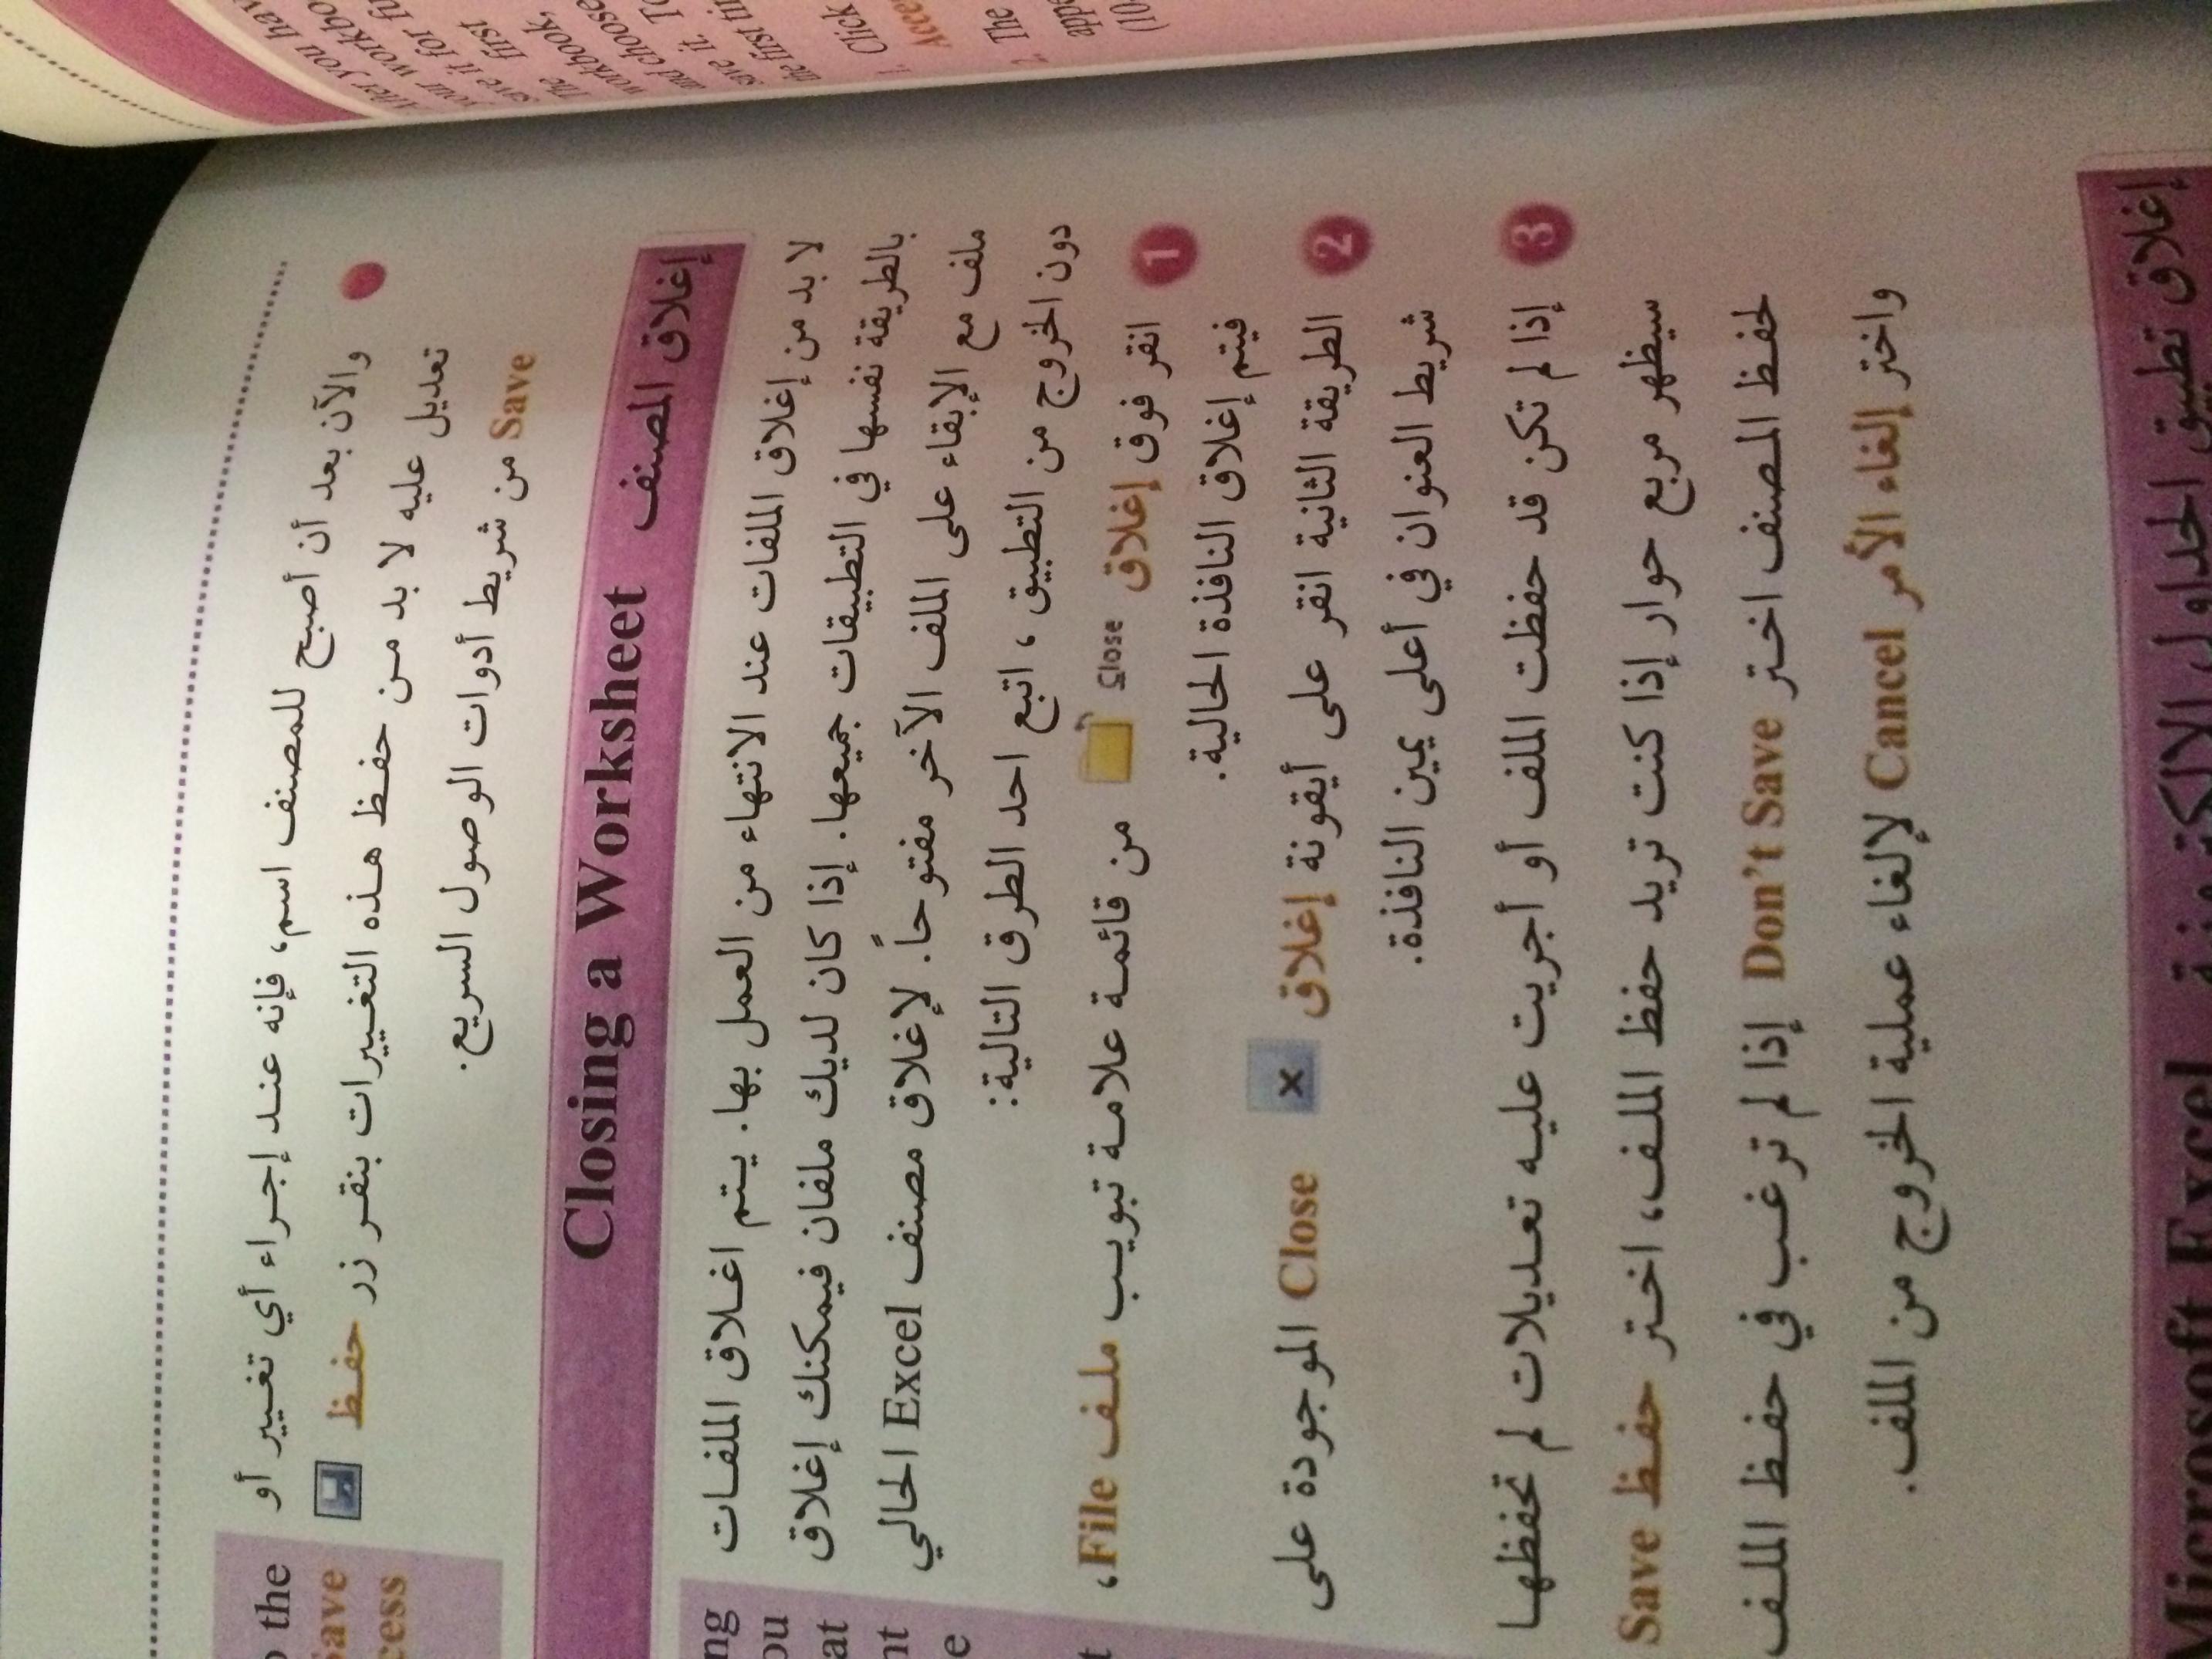 After you hav
your workbo
save it for fu
The first
workbook,
and choose
save it. To
the first tin
1. Click
Acce
2. The
appe
(10
والآن بعد أن أصبح للمصنف اسم، فإنه عند إجراء أي تغيير أو
تعديل عليه لا بد من حفظ هذه التغييرات بنقر زر حفظ
Save من شريط أدوات الوصول السريع.
o the
Save
cess
إغلاق المصنف Closing a Worksheet
لا بد من إغلاق الملفات عند الانتهاء من العمل بها. يتم اغلاق الملفات
بالطريقة نفسها في التطبيقات جميعها. إذا كان لديك ملفان فيمكنك إغلاق
ملف مع الإبقاء على الملف الآخر مفتوحاً. لإغلاق مصنف Excel الحالي
دون الخروج من التطبيق ، اتبع احد الطرق التالية:
1 انقر فوق إغلاق Close من قائمة علامة تبويب ملف File،
فيتم إغلاق النافذة الحالية.
2 الطريقة الثانية انقر على أيقونة إغلاق x Close الموجودة على
شريط العنوان في أعلى يمين النافذة.
3 إذا لم تكن قد حفظت الملف أو أجريت عليه تعديلات لم تحفظها
سيظهر مربع حوار إذا كنت تريد حفظ الملف، اختر حفظ Save
لحفظ المصنف اختر Don't Save إذا لم ترغب في حفظ الملف
واختر إلغاء الأمر Cancel لإلغاء عملية الخروج من الملف.
ng
ou
at
nt
e
t
إغلاق تطبيق الجداول الالكترونية Microsoft Excel